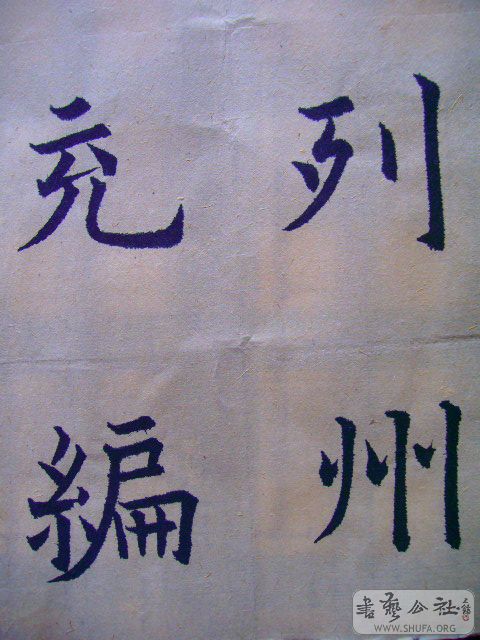 列州
充編
書藝公社
WWW.SHUFA.ORG